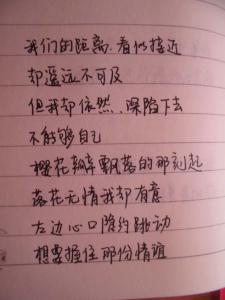 我们的距离 看似接近
却遥远不可及
但我却依然 深陷下去
不能够自己
樱花瓣飘落的那刻起
落花无情我却有意
左边心口隐约跳动
想要握住那份情谊